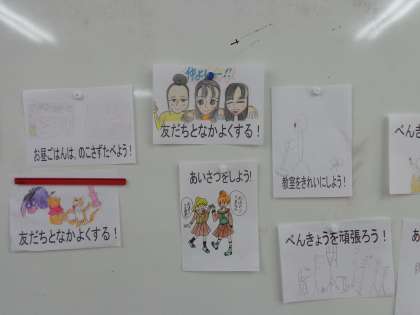 仲よしー!!
友だちとなかよくする！
お昼ごはんは、のこさずたべよう！
あいさつをしよう!
教室をきれいにしよう！
べん
友だちとなかよくする！
べんきょうを頑張ろう！
あ